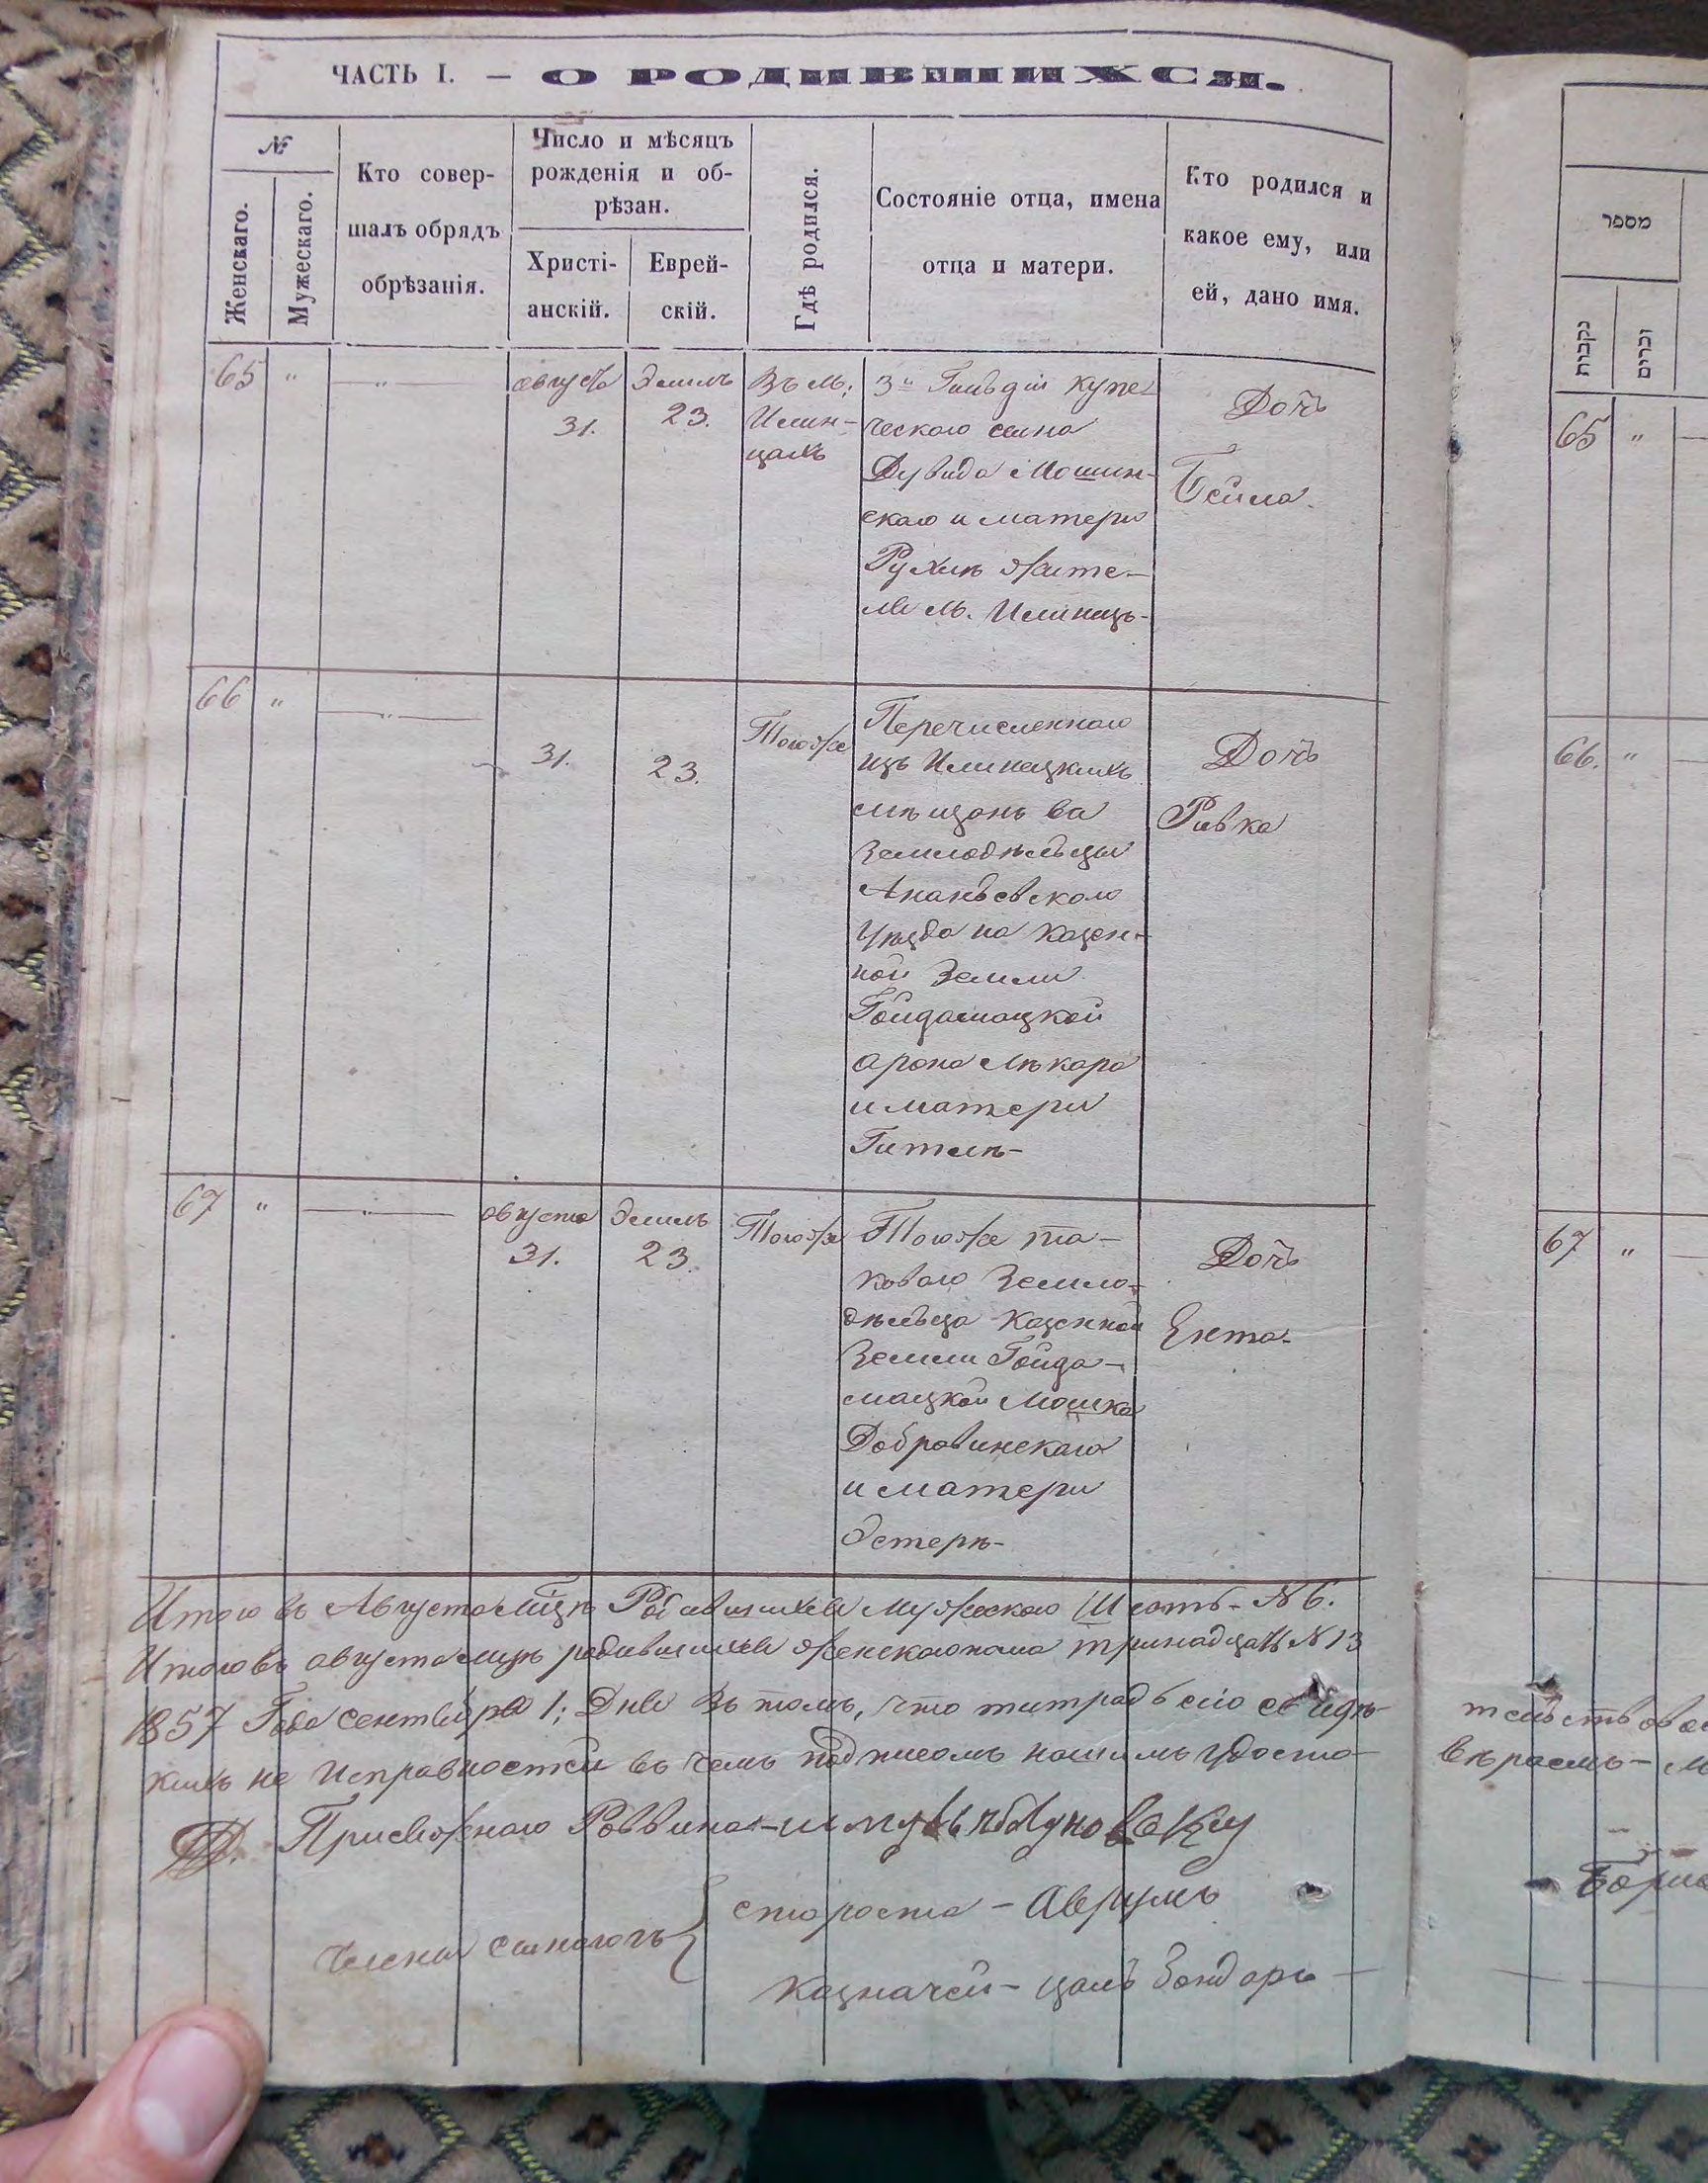 ЧАСТЬ I. — О РОДИВШИХСЯ.
№
Женскаго.
Мужескаго.
Кто совер-
шалъ обрядъ
обрѣзанія.
Число и мѣсяцъ
рожденія и об-
рѣзан.
Христі-
анскій.
Еврей-
скій.
Гдѣ родился.
Состояніе отца, имена
отца и матери.
Кто родился и
какое ему, или
ей, дано имя.
65 " —"—
августа
31.
Элилъ
23.
Въ м:
Илин-
цахъ
3й Гильдіи купе-
ческого сына
Дувида Мошин-
скаго и матери
Рухли жите-
ли м. Илинцъ-
Дочь
Бейла.
66 " —"—
31.
23.
Тогоже
Перечисленного
изъ Илинецкихъ
мѣщанъ ва
Землодѣльцы
Ананьевского
Уѣзда на казен-
ной Земли
Гойдамацкой
арона Лѣкара
и матери
Гителѣ-
Дочь
Ривка
67 " —"—
августа
31.
Элилъ
23.
Тогоже
Тогоже та-
коваго Земло-
дѣльца казенной
Земли Гойда-
мацкой Мошка
Добровинскаго
и матери
Эстерѣ-
Дочь
Ента-
Итого въ Августа мѣцѣ Родившихся Мужеского Шесть- № 6.
Итого въ августа мѣцѣ родившихся женскаго пола тринадцать № 13
1857 Года сентября 1; Дня Въ томъ, что титрадь сію свидѣ-
кихъ не Исправностей въ чемъ подписомъ нашимъ Удосто-
Присяжного Раввина-
Члены синагогъ
староста - Аврумъ
казначей - цаль Бондарь
מספר
נקבות
זכרים
65 "
66. "
67 "
тельствова
вѣряемъ-